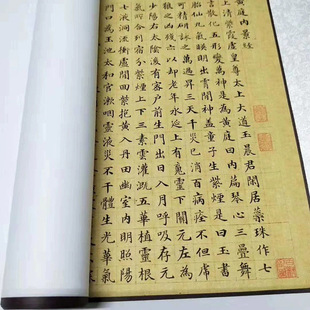 黄庭内景經
上清紫霞虛皇尊太上大道玉晨君閑居蘂珠作七
言散化五形變萬神是為黄庭曰内篇琴心三疊舞
胎仙九氣暎明出霄間神蓋童子生紫煙是曰玉書
可精研詠之萬過昇三天千災已消百病痊不但
之凶殘以却老年永延上有魂靈下關元左為
少陽右太陰後有密户前生門出日入月呼吸存元
氣所合列宿分紫煙上下三素雲灌溉五華植靈根
七液洞流衝廬間迴紫抱黄入丹田幽室内明照陽
門口為玉池太和官漱咽靈液災不干體生光華氣